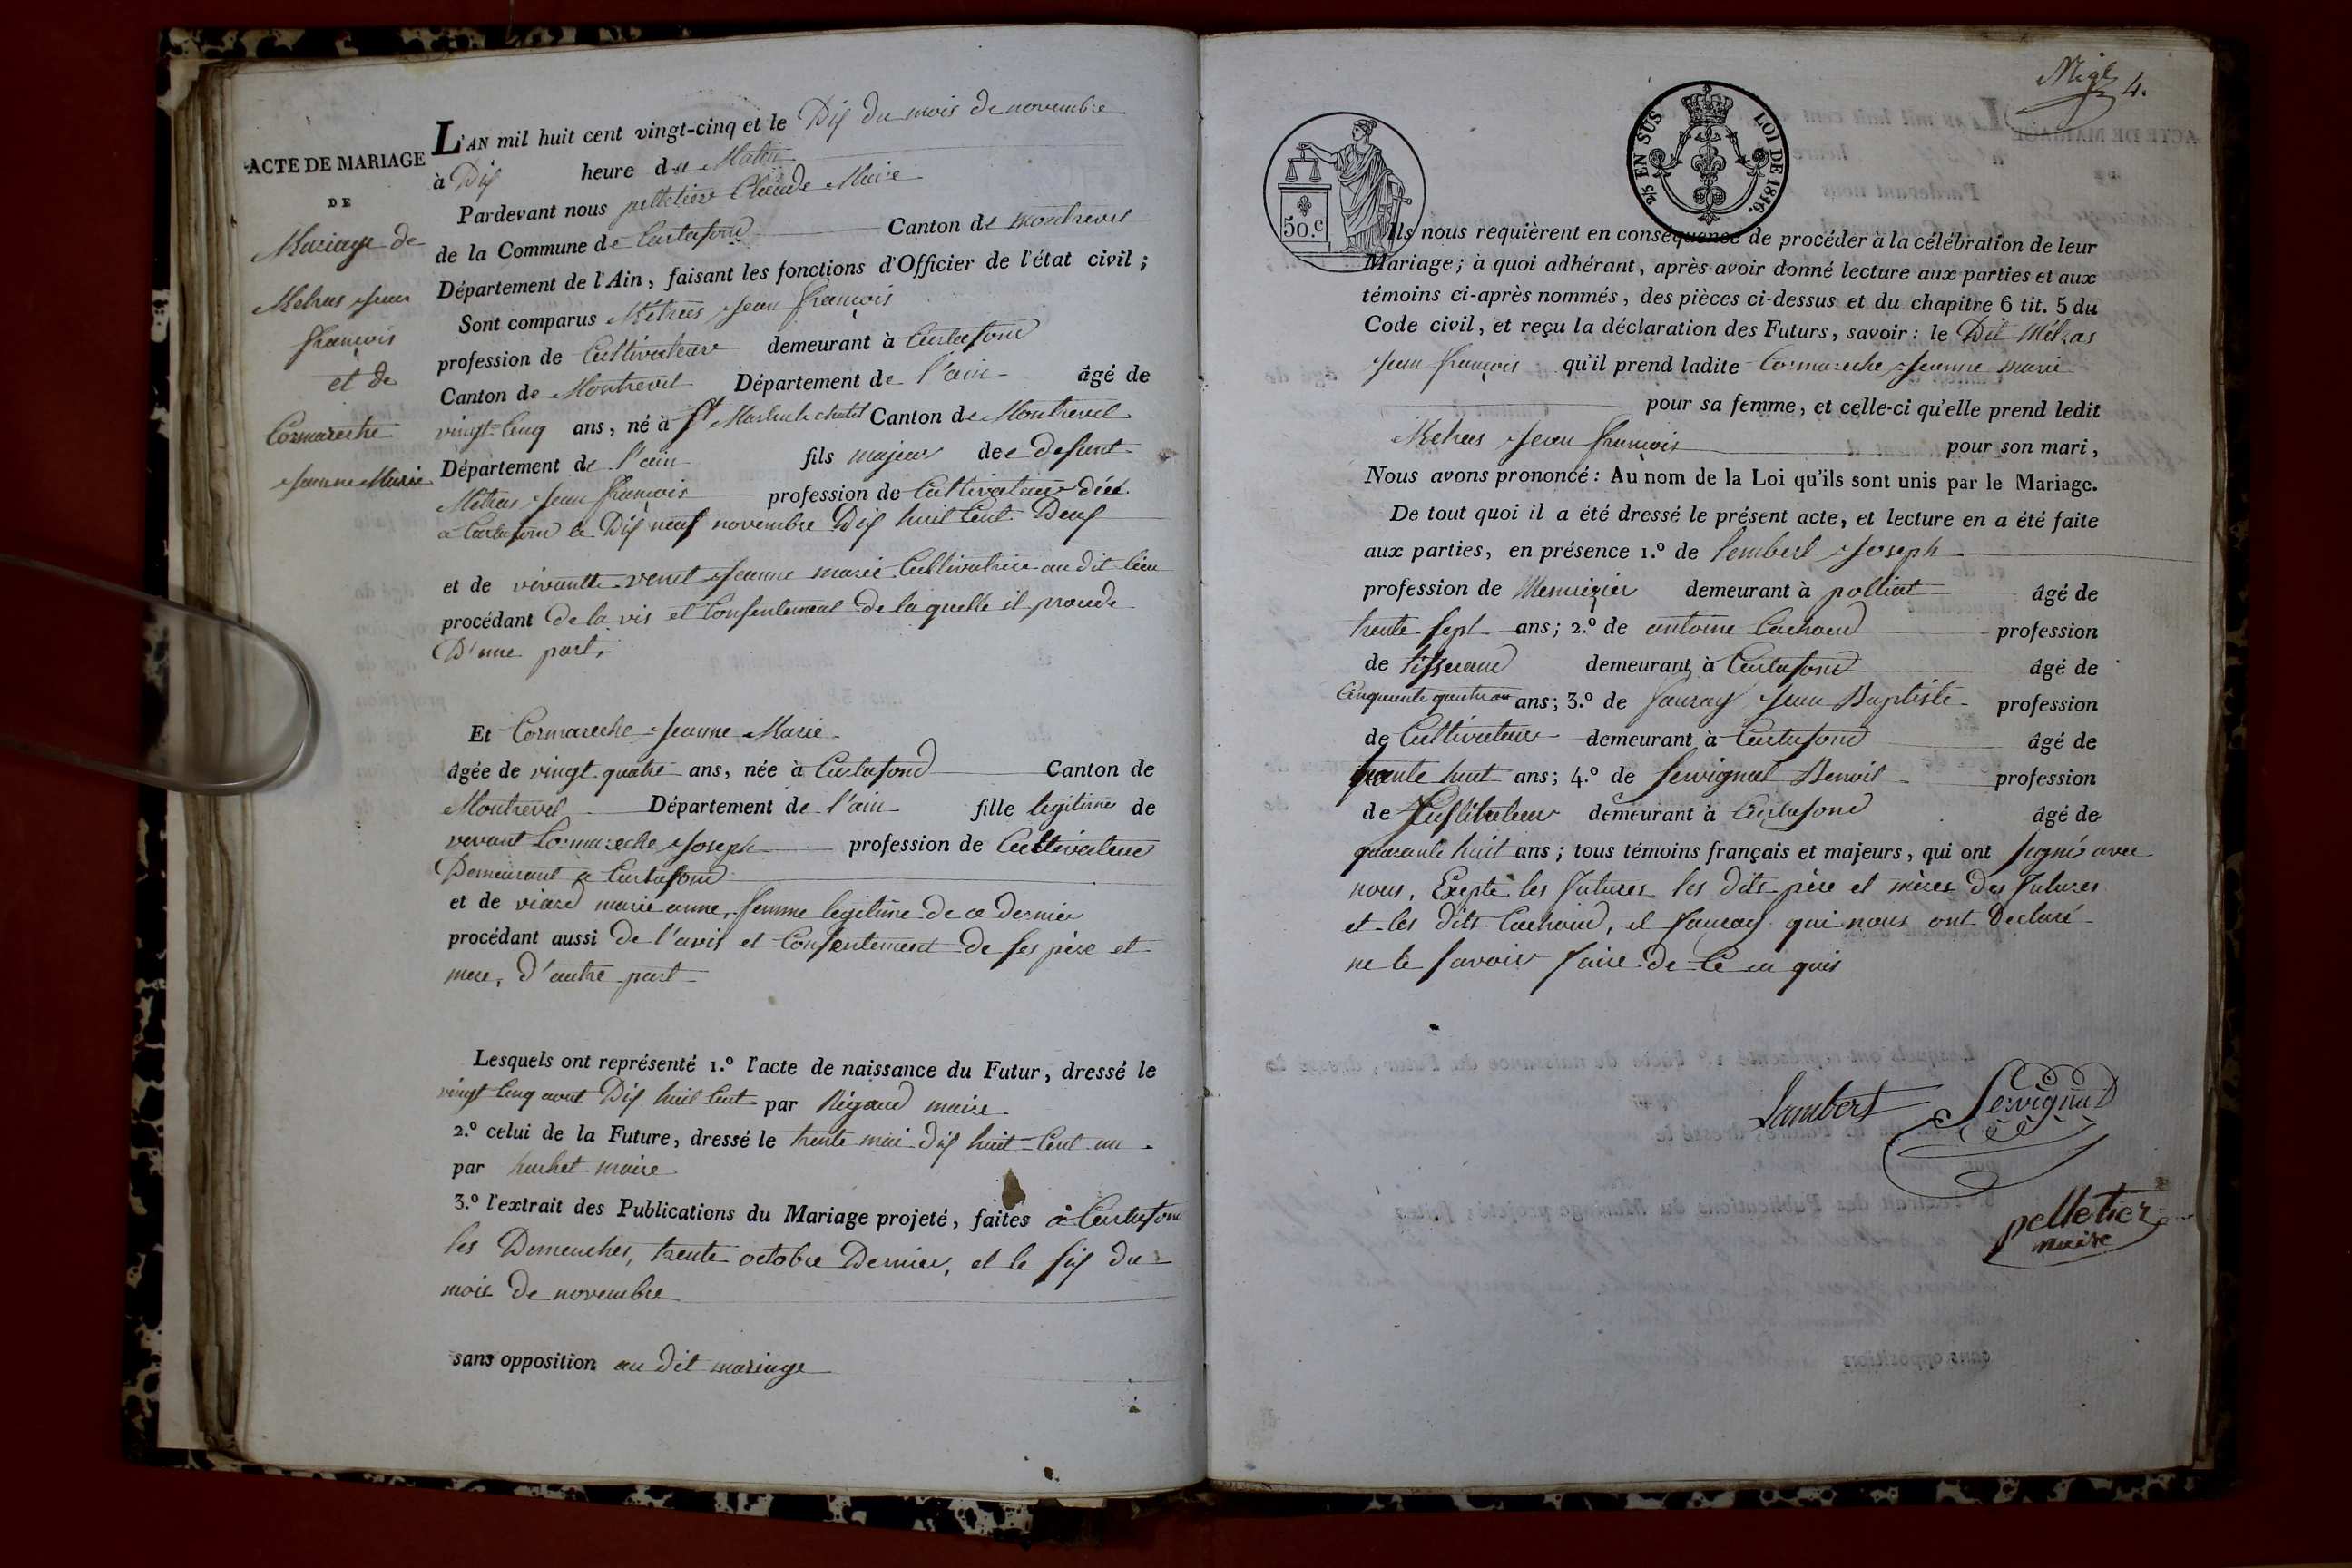 ACTE DE MARIAGE
DE
Mariage de
Metras Jean
françois
et de
Cormareche
Jeanne Marie
L'AN mil huit cent vingt-cinq et le Dix du mois de novembre
à Dix heure du Matin
Pardevant nous pelletier Claude Maire
de la Commune de Curtafond Canton de montrevel
Département de l'Ain, faisant les fonctions d'Officier de l'état civil;
Sont comparus Metras Jean françois
profession de Cultivateur demeurant à Curtafond
Canton de Montrevel Département de l'ain âgé de
vingt-Cinq ans, né à St Canton de Montrevel
Département de l'ain fils majeur de defunt
Metras Jean françois profession de Cultivateur
a Curtafond le Dix neuf novembre Dix huit Cent Deux
et de vivantte Jeanne marie Cultivatrice au dit lieu
procédant de la vis et Consentement de laquelle il procede
D'une part,
Et Cormareche Jeanne Marie
âgée de vingt quatre ans, née à Curtafond Canton de
Montrevel Département de l'ain fille legitime de
vivant Cormareche Joseph profession de Cultivateur
Demeurant a Curtafond
et de viard marie anne, femme legitime de ce dernier
procédant aussi de l'avis et Consentement de ses père et
mere, d'autre part
Lesquels ont représenté 1.º l'acte de naissance du Futur, dressé le
vingt Cinq aout Dix huit Cent par Rigaud maire
2.º celui de la Future, dressé le trente mai dix huit Cent un
par maire
3.º l'extrait des Publications du Mariage projeté, faites à Curtafond
les Demenches, trente octobre Dernier, et le six du
mois de novembre
sans opposition au dit mariage
4.
50.c
2/5 EN SUS LOI DE 1816.
Ils nous requièrent en conséquence de procéder à la célébration de leur
Mariage; à quoi adhérant, après avoir donné lecture aux parties et aux
témoins ci-après nommés, des pièces ci-dessus et du chapitre 6 tit. 5 du
Code civil, et reçu la déclaration des Futurs, savoir: le Dit Métras
Jean françois qu'il prend ladite Cormareche Jeanne marie
pour sa femme, et celle-ci qu'elle prend ledit
Metras Jean françois pour son mari,
Nous avons prononcé: Au nom de la Loi qu'ils sont unis par le Mariage.
De tout quoi il a été dressé le présent acte, et lecture en a été faite
aux parties, en présence 1.º de lembert Joseph
profession de Menuizier demeurant à polliat âgé de
trente sept ans; 2.º de antoine Cachoud profession
de tisserand demeurant à Curtafond âgé de
Cinquante quatre ans; 3.º de Jean Baptiste profession
de Cultivateur demeurant à Curtafond âgé de
huit ans; 4.º de Servignat Benoit profession
de demeurant à Curtafond âgé de
quarante huit ans; tous témoins français et majeurs, qui ont signé avec
nous, Exepté les futures les dits père et mères des futures
et les dits Cachoud, et qui nous ont Declaré
ne le savoir faire de Ce en quis
Lambert Servignat
pelletier
maire